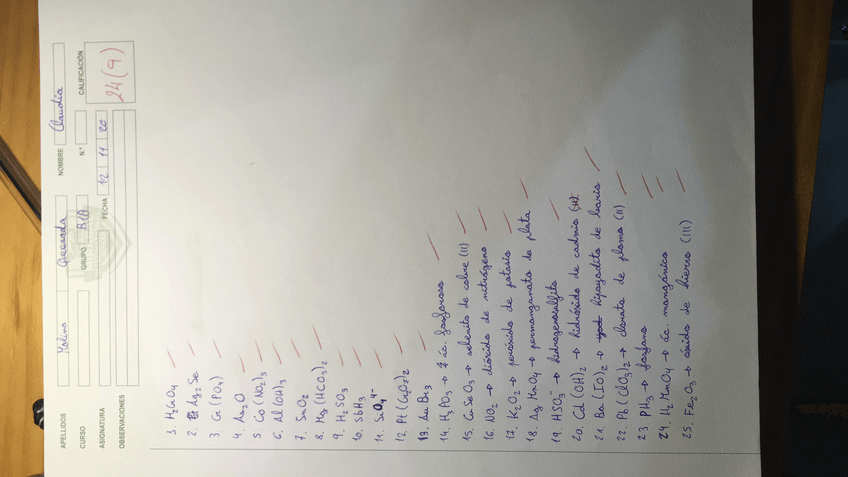 APELLIDOS Molina Quesada NOMBRE Claudia
CURSO GRUPO B1A N.º CALIFICACIÓN
ASIGNATURA FECHA 12 11 20 24 (9)
OBSERVACIONES
1. H2CrO4
2. Ag2Se
3. Cr(PO4)
4. Au2O
5. Co(NO2)3
6. Al(OH)3
7. SnO2
8. Mg(HCO3)2
9. H2SO3
10. SbH3
11. SiO4 4-
12. Pt(Cr2O7)2
13. AuBr3
14. H3PO3 → ác. fosforoso
15. CuSeO3 → selenito de cobre (II)
16. NO2 → dióxido de nitrógeno
17. K2O2 → peróxido de potasio
18. Ag MnO4 → permanganato de plata
19. HSO3- → hidrogenosulfito
20. Cd(OH)2 → hidróxido de cadmio
21. Ba(IO)2 → hipoyodito de bario
22. Pb(ClO3)2 → clorato de plomo (II)
23. PH3 → fosfano
24. H2MnO4 → ác. mangánico
25. Fe2O3 → óxido de hierro (III)